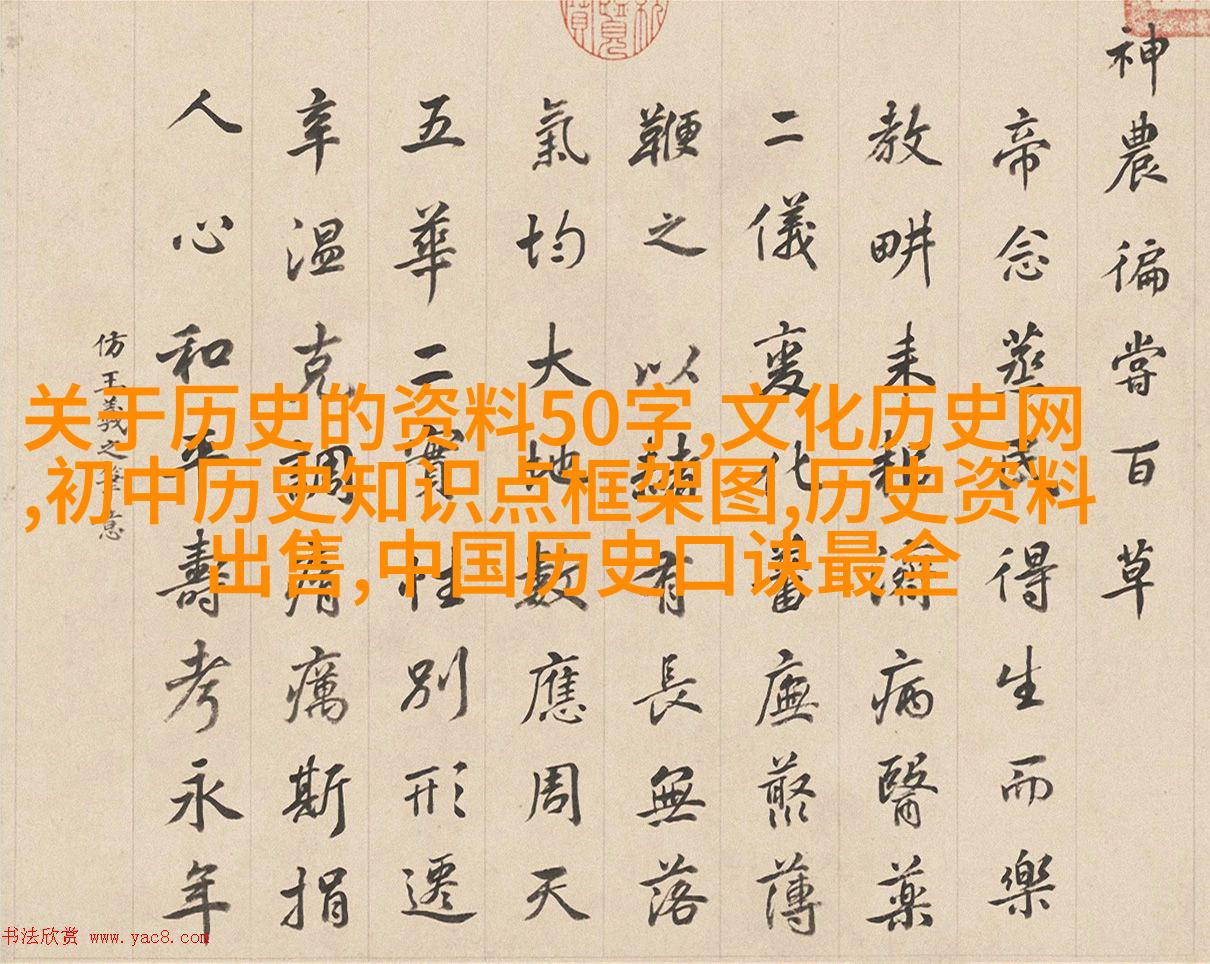 神農徧嘗百草
帝念蒸民得生而樂
教畊耒耜濟病醫藥
二儀變化蕃廡藂薄
鞭之以有長無落
氣均大地數應周天
五華二實性別形遷
辛温克調癘斯捐
人心和平壽考永年
仿王羲之筆意
关于历史的资料50字,文化历史网
,初中历史知识点框架图,历史资料
出售,中国历史口诀最全
书法欣赏 www.yac8.com